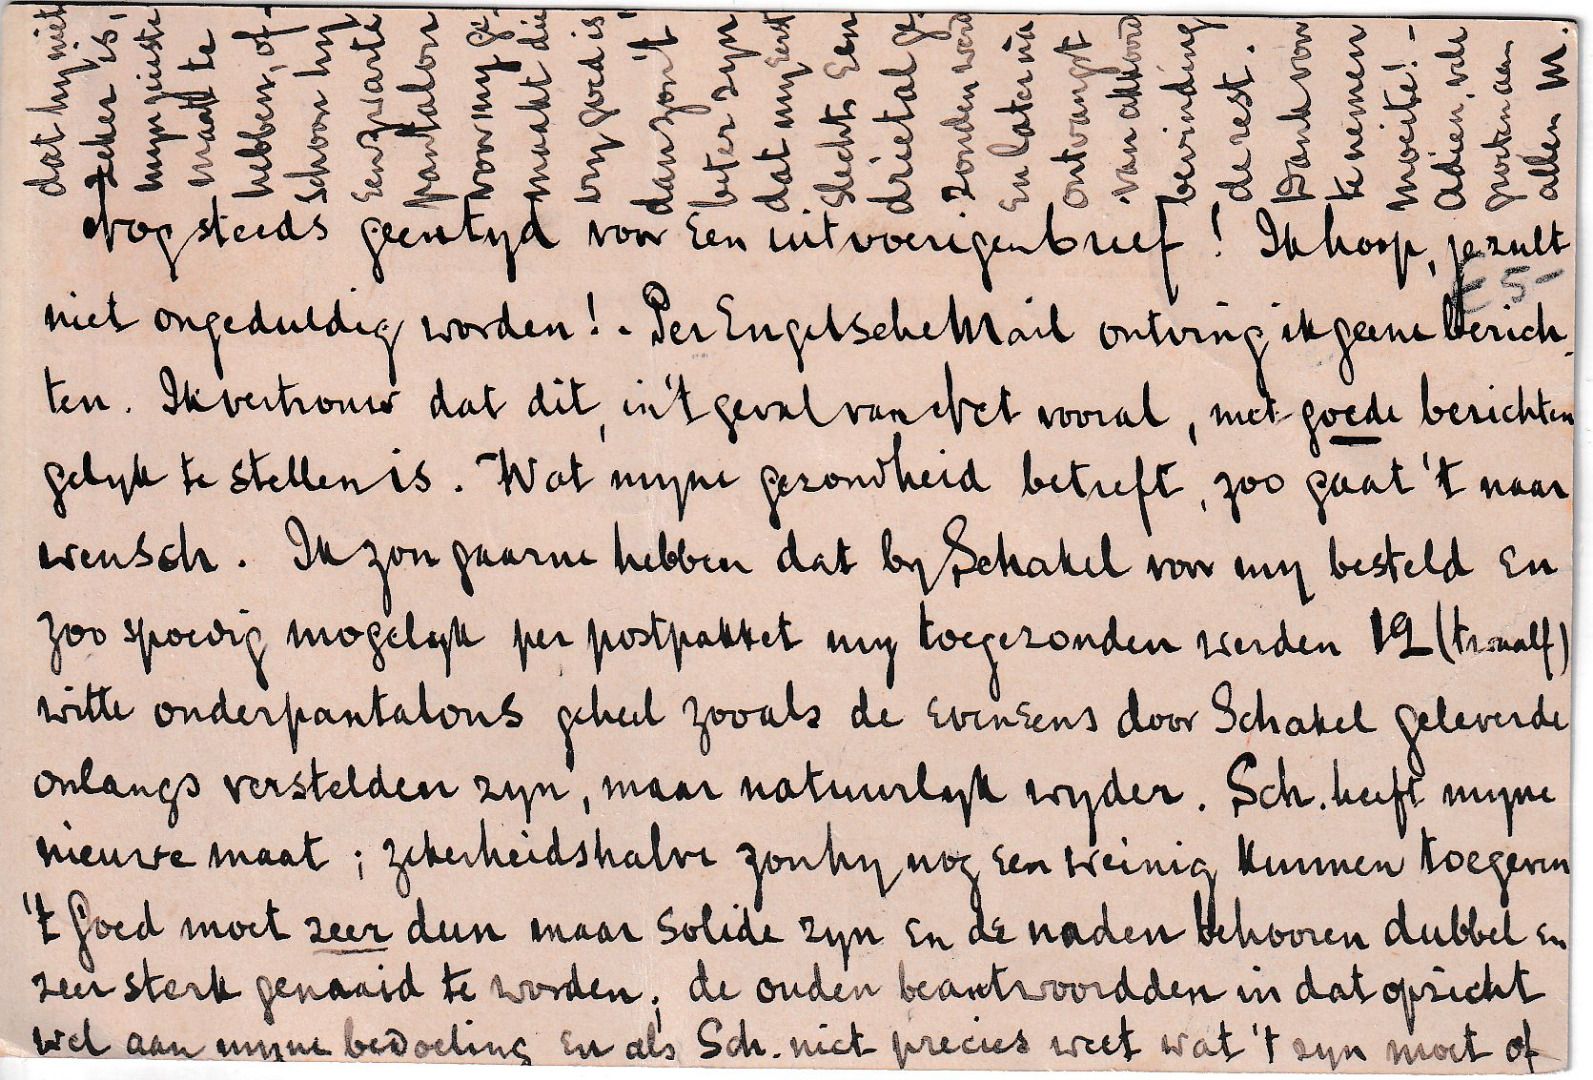 Nog steeds geen tyd voor een uitvoerigen brief! Ik hoop, je zult
niet ongeduldig worden! - Per Engelsche Mail ontving ik geene berich-
ten. Ik vertrouw dat dit, in 't geval van Net vooral, met goede berichten
gelyk te stellen is. Wat myne gezondheid betreft, zoo gaat 't naar
wensch. Ik zou gaarne hebben dat by Schakel voor my besteld en
zoo spoedig mogelyk per postpakket my toegezonden werden 12 (twaalf)
witte onderpantalons geheel zooals de eveneens door Schakel geleverde
onlangs verstelden zyn, maar natuurlyk wyder. Sch. heeft myne
nieuwe maat; zekerheidshalve zou hy nog een weinig kunnen toegeven
't Goed moet zeer dun maar solide zyn en de naden behooren dubbel en
zeer sterk genaaid te worden; de ouden beantwoordden in dat opzicht
wel aan myne bedoeling en als Sch. niet precies weet wat 't zyn moet of
dat hy niet
zeker is,
myn juiste
maat te
hebben, of -
schoon hy
een zwarte
pantalon
voor my ge-
maakt die
vry goed is
dan zou 't
beter zyn
dat my eerst
slechts een
drietal ge-
zonden werd
en later na
ontvangst
van akkoord
bevinding
de rest.
Dank voor
te nemen
moeite! -
Adieu, vele
groeten aan
allen M.
£ 5-